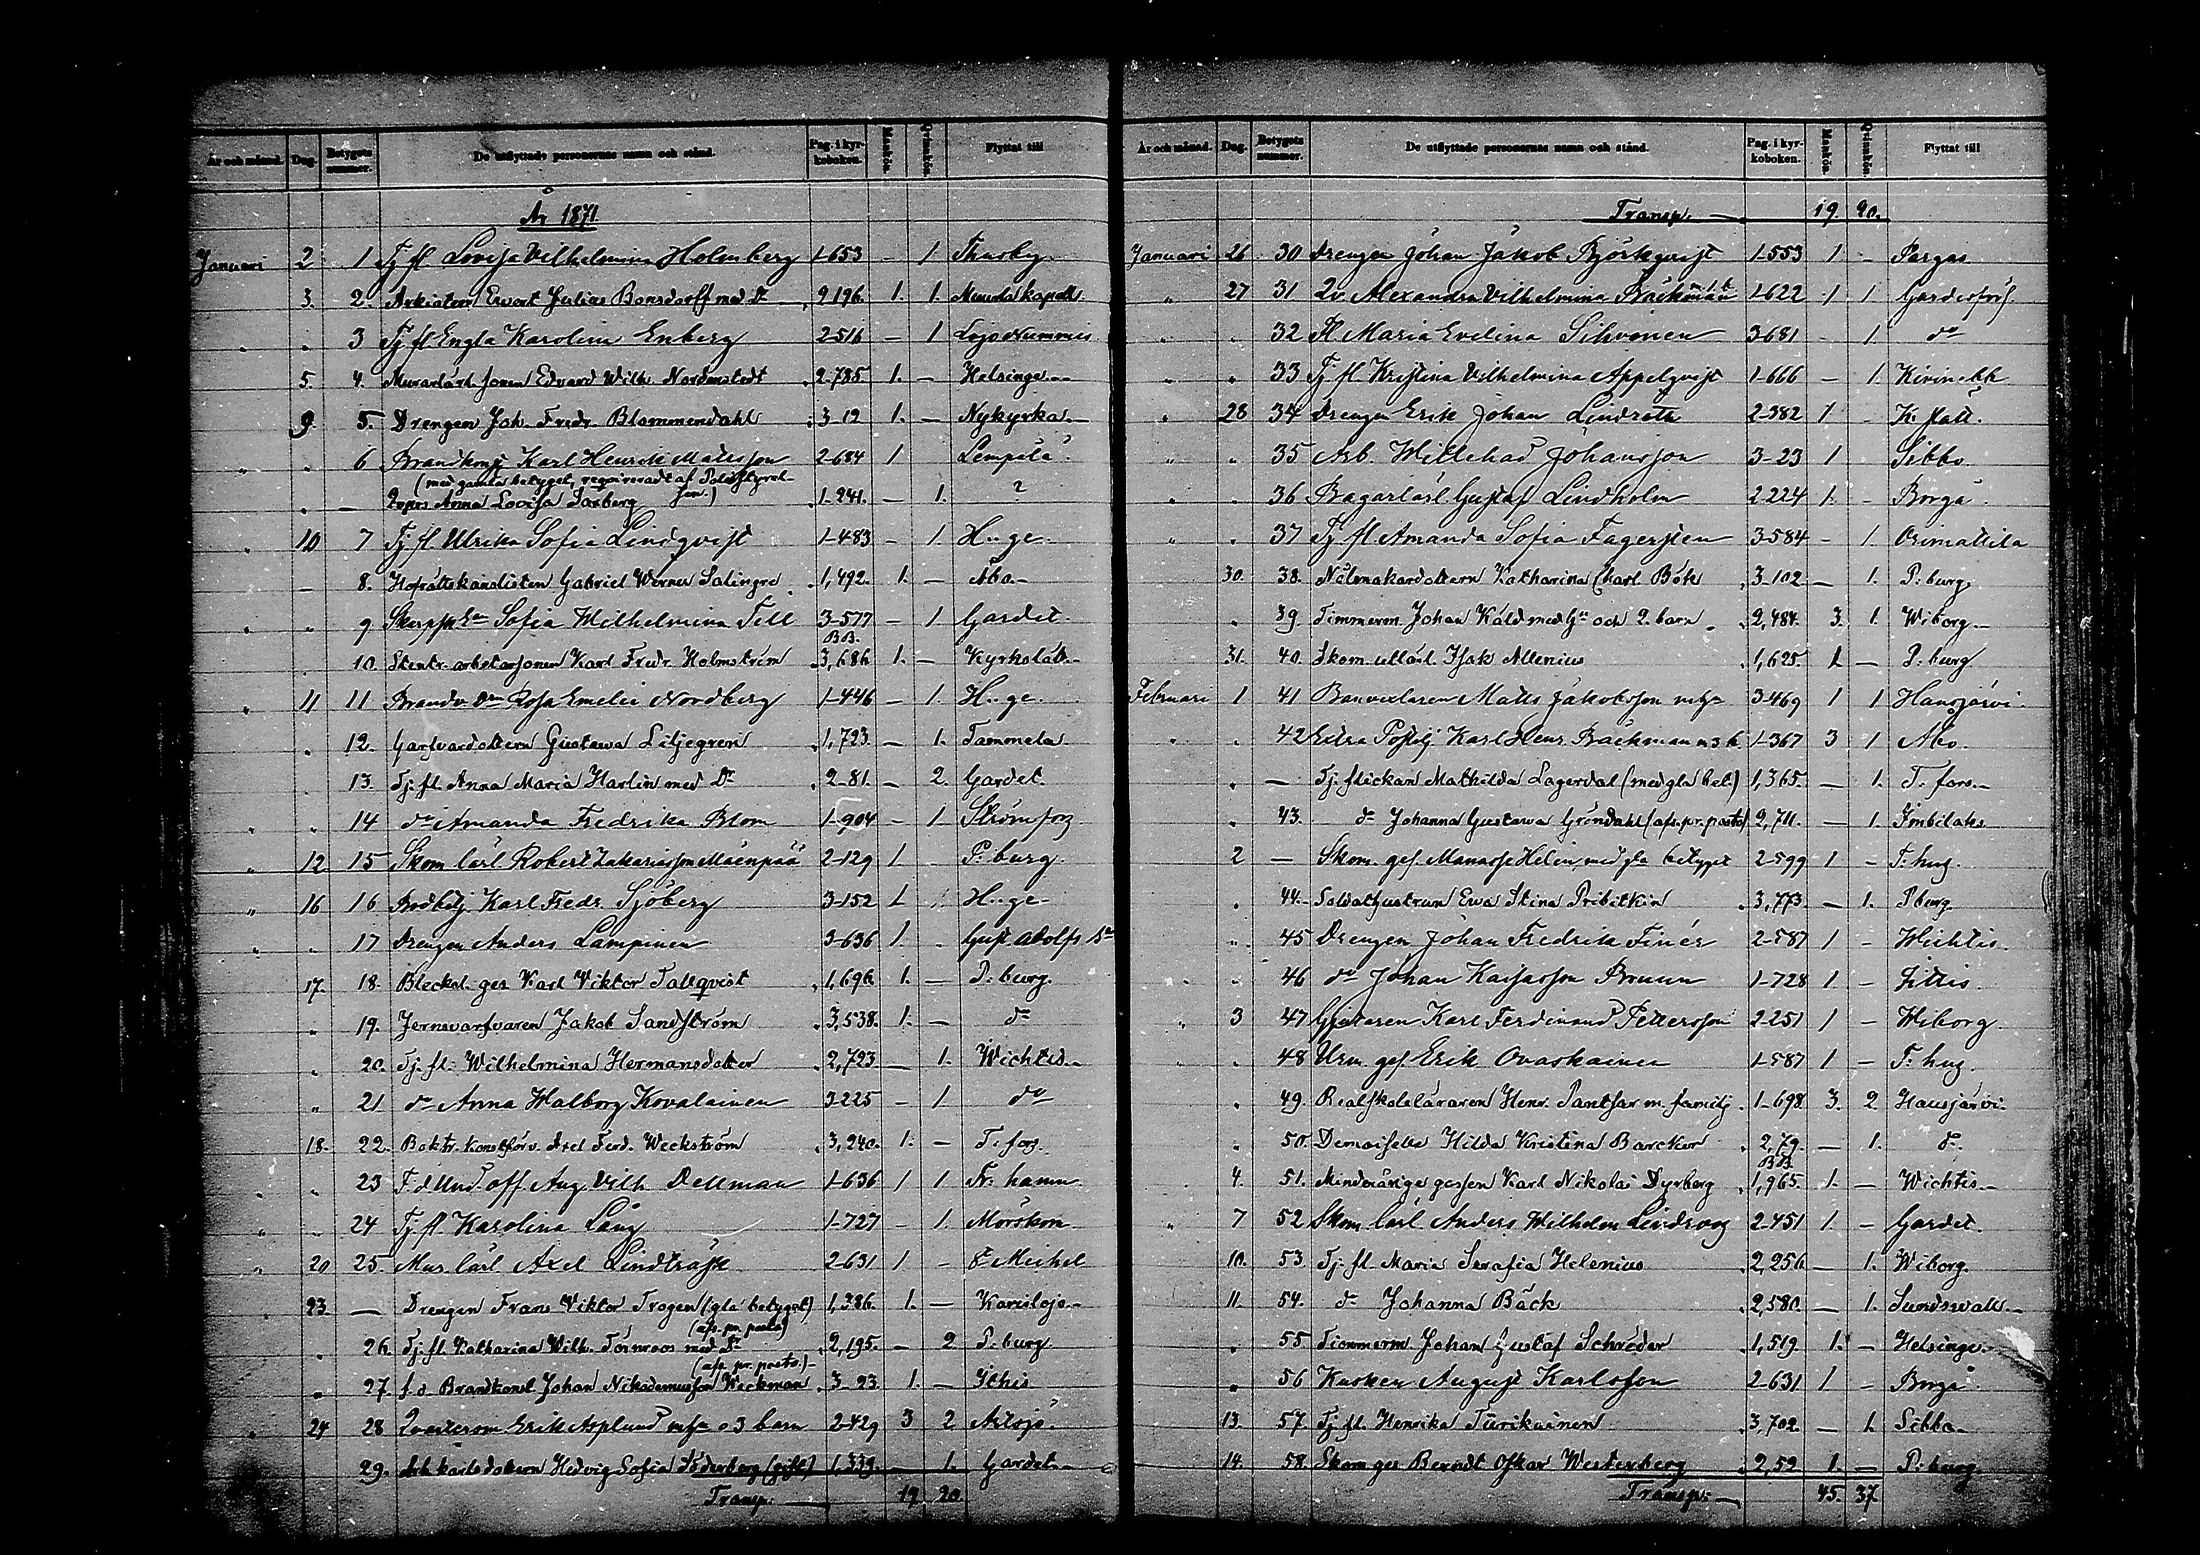 År och månad. Dag. Betygets nummer. De utflyttade personernas namn och stånd. Pag. i kyrkoboken. Mankön. Qvinkön. Flyttat till
År 1871
Januari 2 1 Tj fl Lovisa Vilhelmina Holmberg 1-653 - 1 Thusby
3. 2. Arkiatern Evert Julius Bonsdorff med Dr 2 196. 1. 1. kapell
" " 3 Tj fl Engla Karolina Enberg 2-516 - 1 Lojo Nummis
5. 4. Murarlärl. sonen Edvard Wilh. Nordmstedt 2-785 1. - Helsinge
9. 5. Drengen Joh. Fredr. Blommendahl 3-12 1. - Nykyrka
" " 6 Brandkonst Karl Henrik Mattsson 2-684 1 Lempälä
(med gamla betyget, reqvireradt af Polisstyrelsen.)
" - Anna Lovisa Saxberg 1-241. - 1. ?
" 10 7 Tj fl Ulrika Sofia Lindqvist 1-483 - 1. H..ge.
- 8. Hofrättskanslisten Gabriel Werner Salingre 1,492. 1. - Åbo
" " 9 Sofia Wilhelmina Till 3-577 - 1. Gardet.
BB.
10. Stentr. arbetarsonen Karl Fredr. Holmström 3,686 1. - Kyrkslätt
" 11 11 Brandv. Dr Rosa Emelie Nordberg 1-446 - 1. H..ge.
" 12. Garfvardottern Gustava Liljegren 1,723. - 1. Tammela
13. Tj. fl. Anna Maria Harlin med Dr 2-81. - 2. Gardet.
" " 14 do Amanda Fredrika Blom 1-904 - 1. Strömfors
" 12 15 Skom lärl Robert Zakariasson Mäenpää 2-129 1. P:burg.
" 16 16 Karl Fredr. Sjöberg 3-152 1. H..ge
" " 17 Drengen Anders Lampinen 3-636 1. Gust. Adolfs
17. 18. Blecksl. ges Karl Viktor Tallqvist 1,690. 1. - P:burg.
" 19. Jernsvarfvaren Jakob Sandström 3,538. 1. - do
" 20. Tj. fl. Wilhelmina Hermansdotter 2,723 - 1. Wichtis
" 21 do Anna Walborg Kovalainen 3-225 - 1 do
18. 22. Axel Ferd. Weckström 3,240. 1. - T:fors.
" " 23 F d Und off Aug. Vilh Dellman 1-636 1 1 Fr:hamn.
" " 24 Tj. fl. Karolina Lång 1-727 - 1. Mörskom
" 20 25. Mur. lärl Axel Lindträsk 2-631 1 - St Michel
23. - Drengen Frans Viktor Trogen (gla betyget) 1,386. 1. - Karislojo
(afs. pr. posto)
" 26. Tj. fl. Katharina Wilh. Törnroos med Dr 2,195. - 2 P:burg
(afs. pr. posto.)
" 27. f. d. Brandkonst. Johan Nikodemusson Weckman 3-23. 1. - Ithis
" 24 28 Erik Asplund o 3 barn 2-429 3 2 Artsjö
29. Arb. karlsdottern Hedvig Sofia Söderberg (gift) 1,339. - 1. Gardet
Transp. 19. 20.
År och månad. Dag. Betygets nummer. De utflyttade personernas namn och stånd. Pag. i kyrkoboken. Mankön. Qvinkön. Flyttat till
Transp. 19. 20.
Januari 26 30 Drengen Johan Jakob Björkqvist 1-553 1 - Pargas
" 27 31 Qv. Alexandra Vilhelmina Bäckman m. 1 b. 1-622 1 1
" " 32 Fl Maria Evelina Sihvonen 3-681 - 1 do
" " 33 Tj. fl. Kristina Vilhelmina Appelqvist 1-666 - 1. Kivinebb
" 28 34 Drengen Erik Johan Lindroth 2-382 1 -
" " 35 Arb. Willehad Johansson 3-23 1 Sibbo
" " 36 Bagarlärl Gustaf Lindholm 2-224 1. - Borgå
" " 37 Tj fl Amanda Sofia Fagersten 3-584 - 1. Orimattila
30. 38. Nålmakardottern Katharina Charl. Bök 3-102 - 1. P:burg.
" 39 Timmerm. Johan Käld med Hu och 2. barn 2,484. 3. 1. Wiborg
31. 40. Skom. utlärl. Isak Allenius 1,625. 1. - P:burg
Februari 1 41 Matts Jakobsson 3-469 1 1 Hausjärvi
" " 42 Extra Postilj Karl Henr. Bäckman m 3 b. 1-367 3 1 Åbo.
" - Tj. flickan Mathilda Lagerdal (med gla bet) 1,365. - 1. T:fors
" 43. do Johanna Gustava Gröndahl (afs. pr. posto) 2,711. - 1. Imbilaks
2 - Skom. ges. Manasse Helin, med gla betyget 2-599 1 - T:hus.
" 44. Soldathustrun Eva Stina Pribitkin 3,773. - 1. Pburg
" 45 Drengen Johan Fredrik Finér 2-587 1 - Wichtis
" " 46 do Johan Kaisasson Bruun 1-728 1. -
" 3 47 Karl Ferdinand Pettersson 2-251 1 - Wiborg
" 48 Urm. ges. Erik Ovaskainen 1-587 1 - T:hus.
" 49. Realskoleläraren Henr. Pantsar m. familj 1-698 3. 2. Hausjärvi
" 50. Demoiselle Hilda Kristina Barcker 2,79. - 1. do
BB.
4. 51. Minderårige gossen Karl Nikolai Dyrberg 1,965. 1. - Wichtis
" 7 52 Skom. lärl. Anders Wilhelm Lindroos 2-451 1. - Gardet.
10. 53. Tj. fl. Maria Serafia Helenius 2,256 - 1. Wiborg.
11. 54. do Johanna Bäck 2,580. - 1. Sundsvall
" 55 Timmerm Johan Gustaf Schröder 1,519 1. - Helsinge
" 56 Kusken August Karlsson 2-631 1 - Borgå
13. 57. Tj. fl. Henrika Turikainen 3,702. - 1. Sibbo
14. 58. Skom ges Berndt Oskar Westerberg 2,59 1. - P:burg.
Transp. 45. 37.